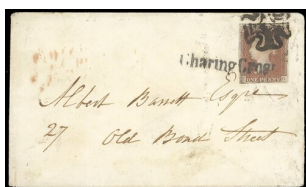 Charing Cross
ONE PENNY
Albert Barrett Esqre
27 Old Bond Street